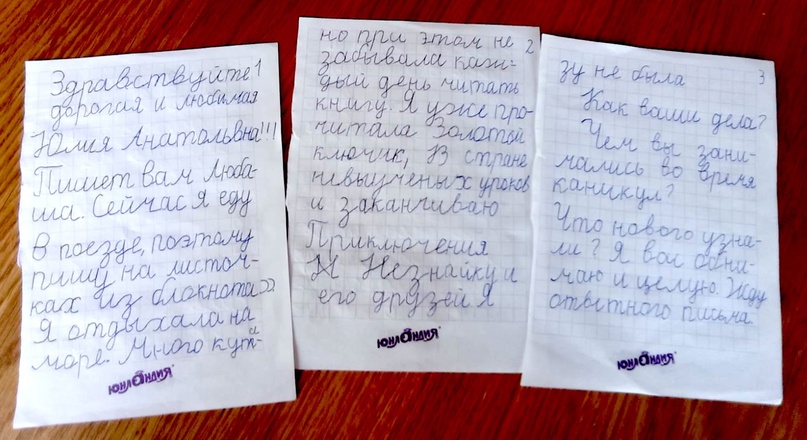 Здравствуйте 1
дорогая и любимая
Юлия Анатольвна!!!
Пишет вам Люба-
ша. Сейчас я еду
В поезде, поэтому
пишу на листоч-
ках из блокнота>>
Я отдыхала на
море. Много
ЮНЛАНДИЯ
но при этом не 2
забывала каж-
дый день читать
книгу. Я уже про-
читала Золотой
ключик, В стране
невыученых уроков
и заканчиваю
Приключения
Незнайку и
его друзей Я
ЮНЛАНДИЯ
зу не была 3
Как ваши дела?
Чем вы зани-
мались во время
каникул?
Что нового узна-
ли? Я вас обни-
маю и целую. Жду
ответного письма
ЮНЛАНДИЯ